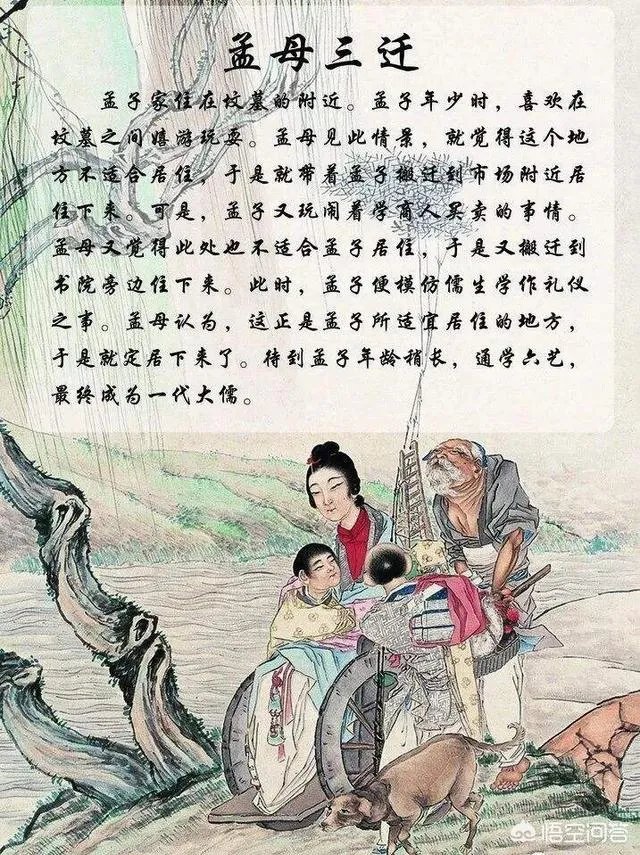 孟母三迁
孟子家住在坟墓的附近。孟子年少时，喜欢在
坟墓之间嬉游玩耍。孟母见此情景，就觉得这个地
方不适合居住，于是就带着孟子搬迁到市场附近居
住下来。可是，孟子又玩闹着学商人买卖的事情。
孟母又觉得此处也不适合孟子居住，于是又搬迁到
书院旁边住下来。此时，孟子便模仿儒生学作礼仪
之事。孟母认为，这正是孟子所适宜居住的地方，
于是就定居下来了。待到孟子年龄稍长，通学六艺，
最终成为一代大儒。
悟空问答